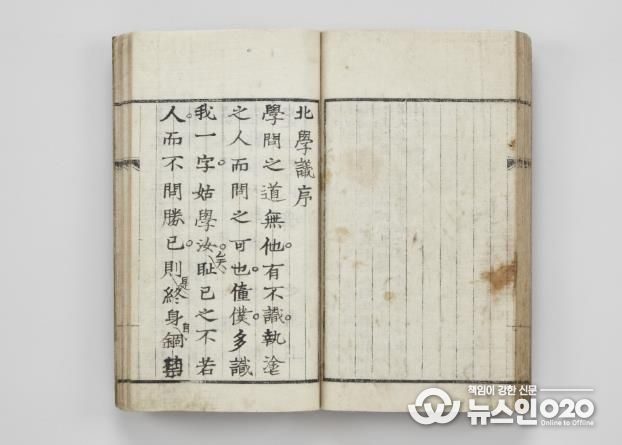 北學議序
學問之道無他。有不識。執塗
之人而問之可也。僮僕。多識
我一字。姑學汝矣。恥己之不若
人。而不問勝己。則是終身自錮
책임이 강한 신문
뉴스인020
Online to Offline